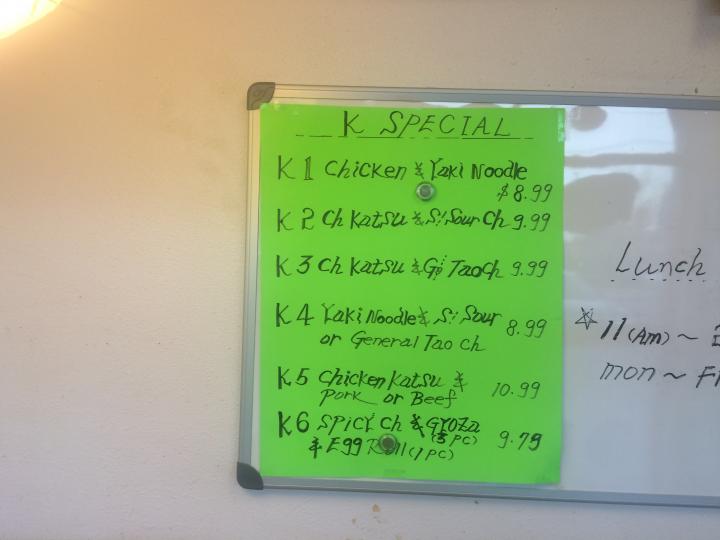 K SPECIAL
K1 Chicken & Yaki Noodle
$8.99
K2 Ch Katsu & S/Sour Ch 9.99
K3 Ch Katsu & G/ TaoCh 9.99
K4 Yaki Noodle & S/ Sour 8.99
or General Tao Ch
K5 Chicken Katsu & 10.99
Pork or Beef
K6 SPICY Ch & GYOZA 9.79
(3 PC)
& Egg Roll (1 PC)
Lunch
☆ 11(AM) ~
mon ~